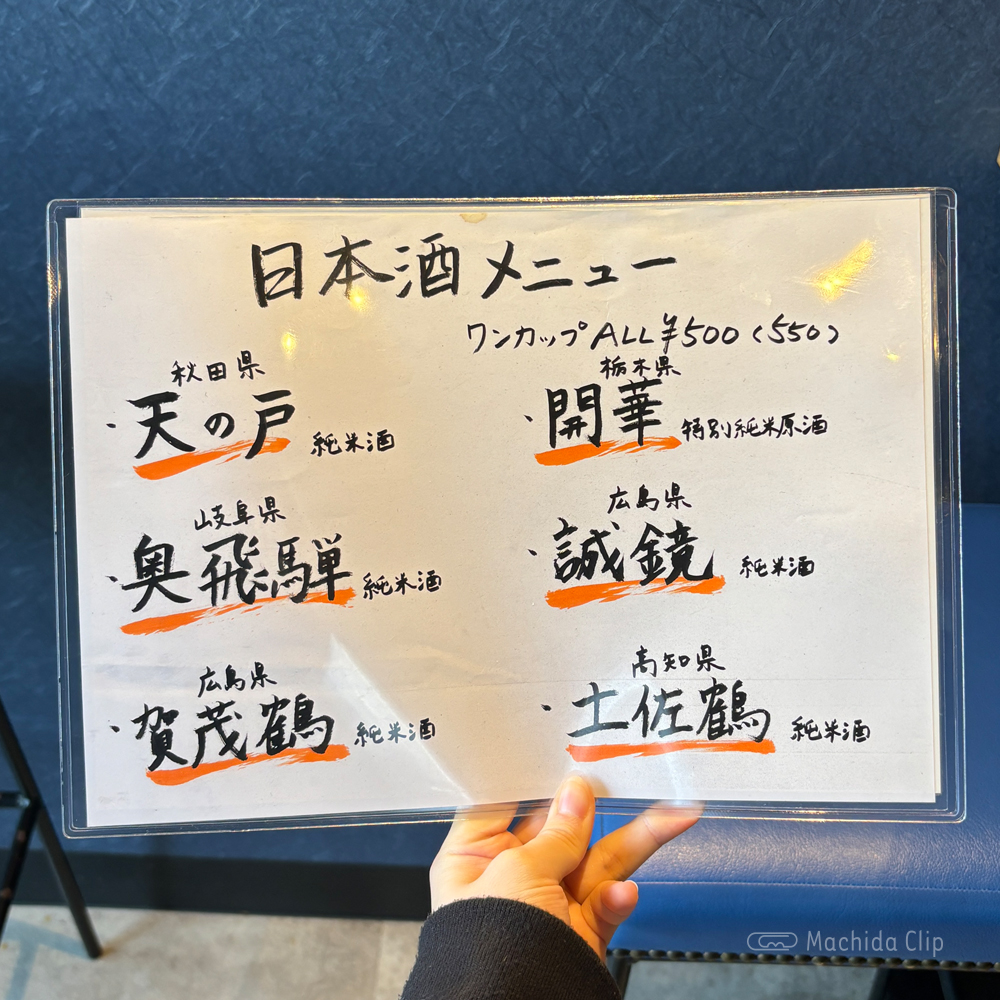 日本酒メニュー
ワンカップALL¥500(550)
秋田県
・天の戸 純米酒
栃木県
・開華 特別純米原酒
岐阜県
・奥飛騨 純米酒
広島県
・誠鏡 純米酒
広島県
・賀茂鶴 純米酒
高知県
・土佐鶴 純米酒
Machida Clip